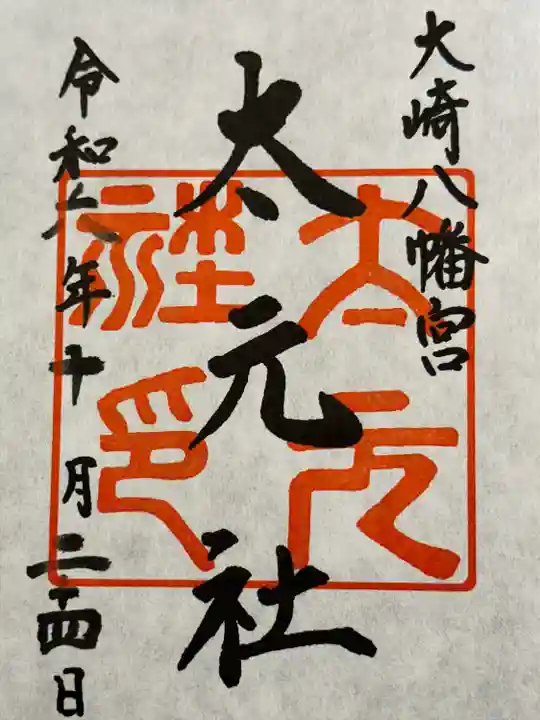 大崎八幡宮
太元社
令和六年十月二十四日
太元社印